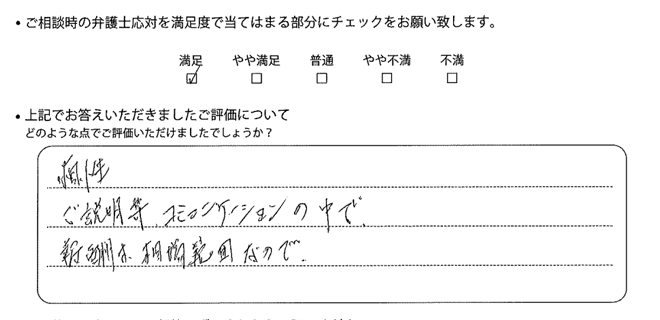 • ご相談時の弁護士応対を満足度で当てはまる部分にチェックをお願い致します。
満足 やや満足 普通 やや不満 不満
☑ ☐ ☐ ☐ ☐
• 上記でお答えいただきましたご評価について
どのような点でご評価いただけましたでしょうか？
ご説明等 コミュニケーションの中で、
報酬は相場範囲なので、